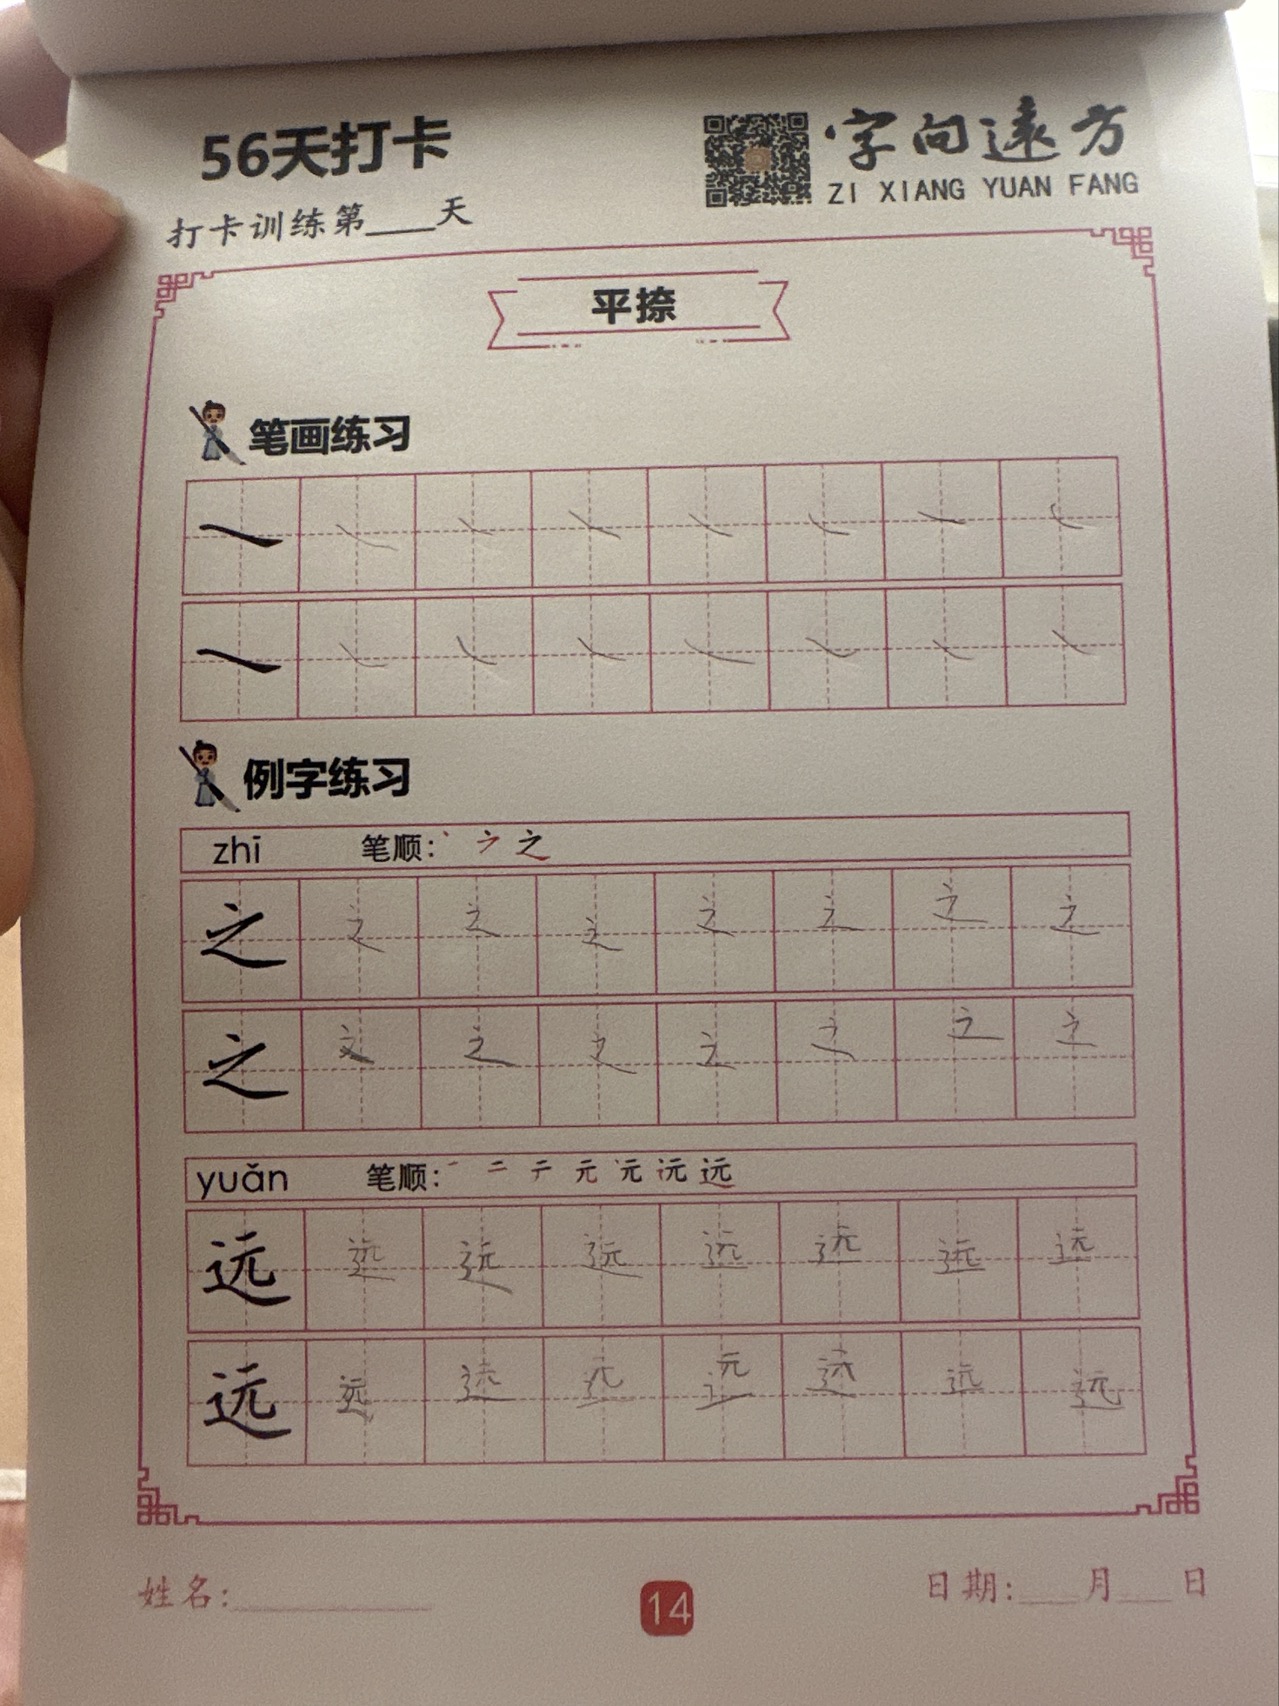 56天打卡
字向遠方
ZI XIANG YUAN FANG
打卡训练第____天
平捺
笔画练习
㇏ ㇏ ㇏ ㇏ ㇏ ㇏ ㇏ ㇏
㇏ ㇏ ㇏ ㇏ ㇏ ㇏ ㇏ ㇏
例字练习
zhī 笔顺: 丶 ㇇ 之
之 之 之 之 之 之 之 之
之 之 之 之 之 之 之 之
yuǎn 笔顺: 一 二 テ 元 远
远 远 远 远 远 远 远 远
远 远 远 远 远 远 远 远
姓名:__________
14
日期:___月___日